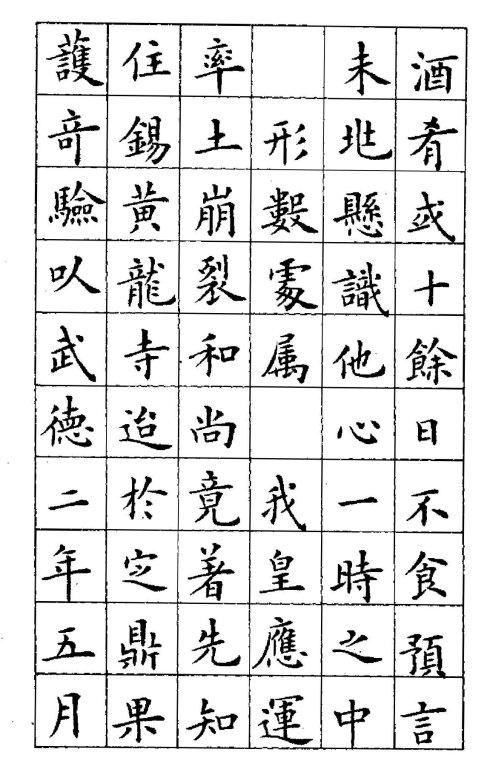 酒肴或十餘日不食預言
未兆懸識他心一時之中
形數處属 我皇應運
率土崩裂和尚竟著先知
住錫黄龍寺迨於㝎鼎果
䕶竒驗以武德二年五月